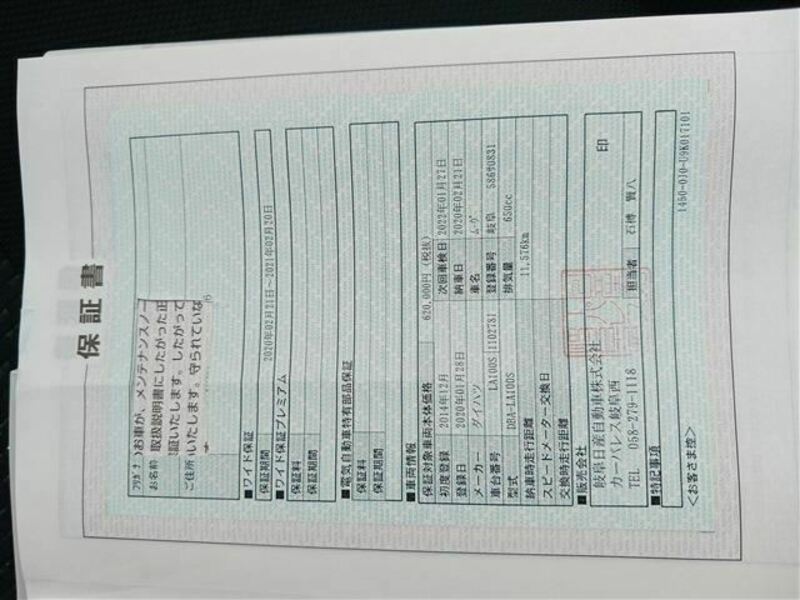 保証書
フリガナ
お名前
ご住所
お車が、メンテナンスノー
取扱説明書にしたがった正
証いたします。したがって
いたします。守られていな
■ワイド保証
保証期間 2020年02月21日～2021年02月20日
■ワイド保証プレミアム
保証料
保証期間
■電気自動車特有部品保証
保証料
保証期間
■車両情報
保証対象車両本体価格 620,000円 (税抜)
初度登録 2014年12月 次回車検日 2022年01月27日
登録日 2020年01月28日 納車日 2020年02月21日
メーカー ダイハツ 車名 ムーヴ
車台番号 LA100S 1102781 登録番号 岐阜 586サ0831
型式 DBA-LA100S 排気量 650cc
納車時走行距離 11,576km
スピードメーター交換日
交換時走行距離
■販売会社
岐阜日産自動車株式会社 印
カーパレス岐阜西
TEL 058-279-1118 担当者 石榑 賢八
■特記事項
＜お客さま控＞ 1450-010-U9K017101